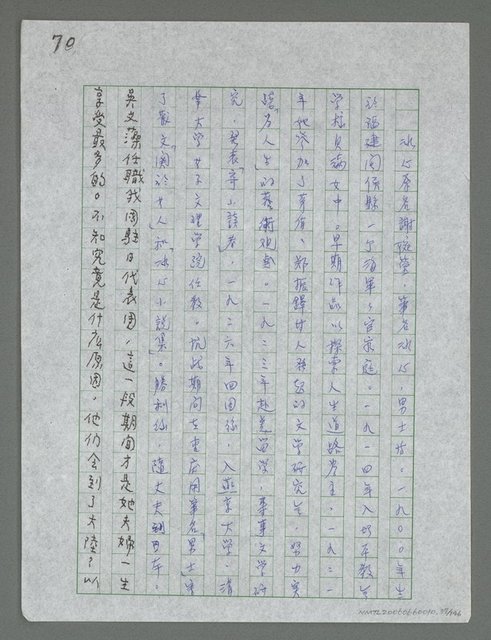 70
冰心原名謝婉瑩，筆名冰心、男士等。一九○○年生
於福建閩侯縣一个海軍軍官家庭。一九一四年入北平教会
学校貝滿女中。早期作品以探索人生道路为主，一九二一
年她參加了茅盾、鄭振鐸廿人發起的文学研究会，努力实
踐「为人生」的藝術观念。一九二三年赴美留学，專事文学研
究，發表「寄小讀者」一九二六年四国後，入燕京大学、清
華大学女子文理学院任教。抗战期间在重庆用筆名「男士」寫
了散文「関於女人」和「冰心小說集」。勝利後隨丈夫到日本。
吳文藻任職我國駐日代表團，這一段期间才是她夫婦一生
享受最多的。不知究竟是什么原因，他们会到了大陸？以
NMTL20060660010